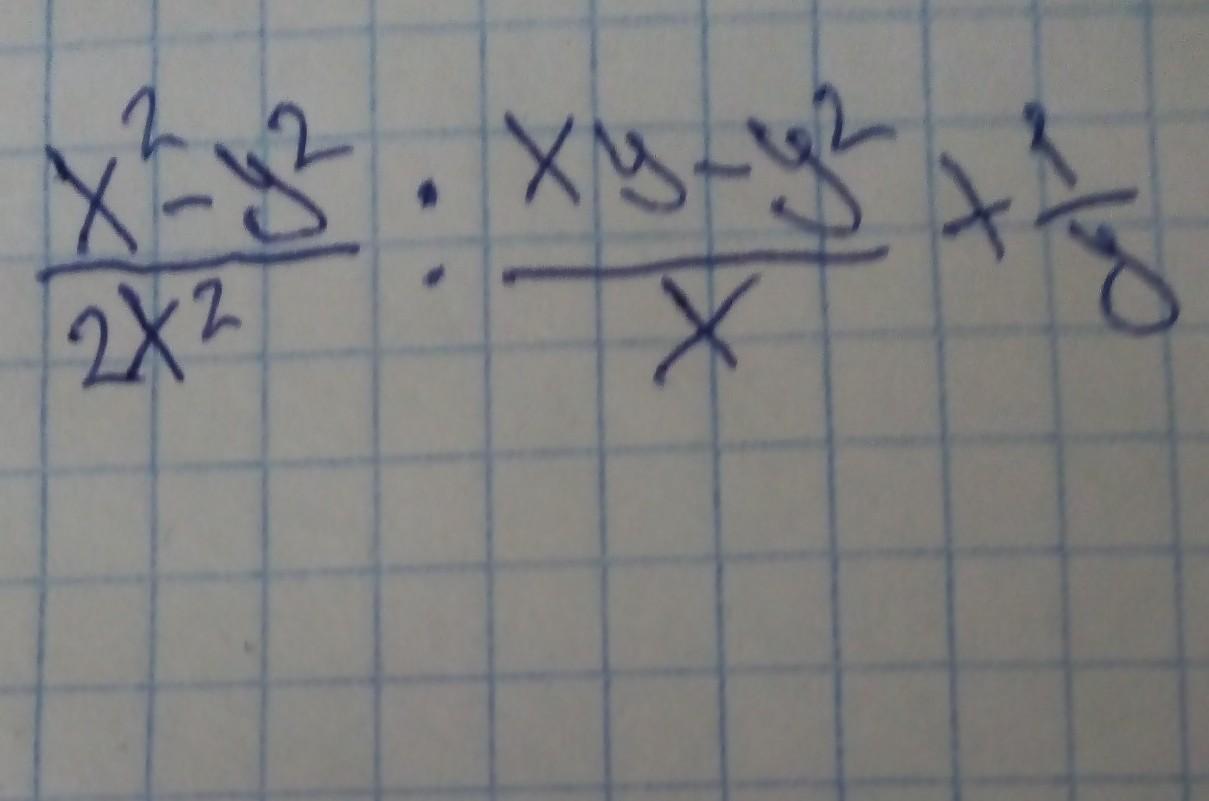 x² - y² / 2x² : xy - y² / x × 2 / y